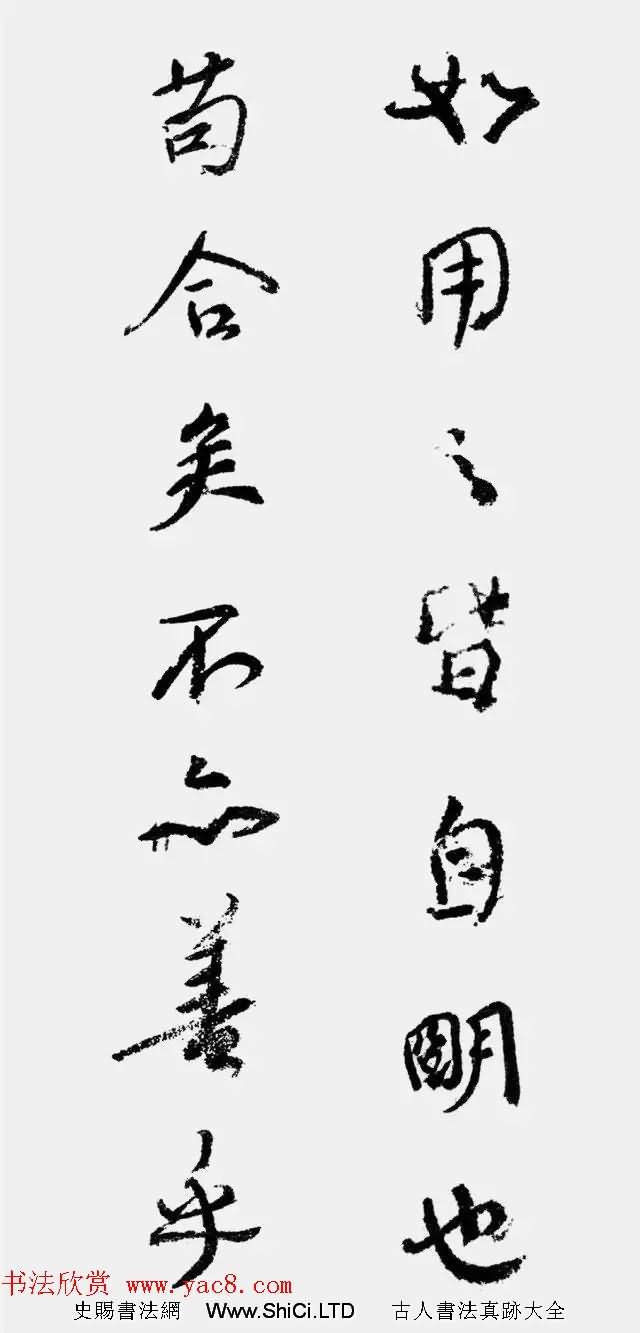 如用之皆自朙也
苟合矣不亦善乎
书法欣赏 www.yac8.com
史賜書法網 Www.ShiCi.LTD 古人書法真跡大全